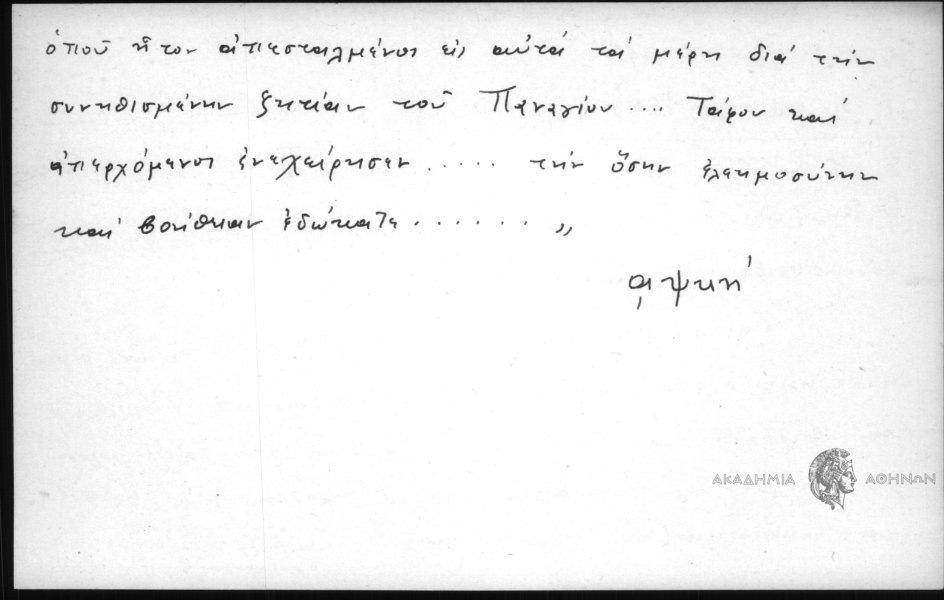 ὁποῦ ἦτον ἀπεσταλμένοι εἰς αὐτά τά μέρη διά τήν
συνηθισμένην ζητείαν τοῦ Παναγίου .... Τάφου καί
ἀπερχόμενοι ἐνεχείρησεν ..... τήν ὅσην ἐλεημοσύνην
καί βοήθειαν ἐδώκατε ....... ,,
͵αψκη΄
ΑΚΑΔΗΜΙΑ ΑΘΗΝΩΝ